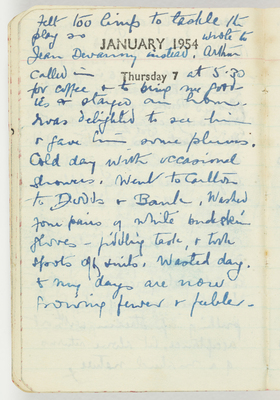 Felt too limp to tackle the
play so wrote to
JANUARY 1954
Jean Devanny instead. Arthur
called in at 5:30
Thursday 7
for coffee & to bring me good
& stayed an hour.
I was delighted to see him
& gave him some plums.
Cold day with occasional
showers. Went to Carlton
to Dodds & Bank. Washed
four pairs of white buckskin
gloves – piddling task, & took
spots off suits. Wasted day.
& my days are now
growing fewer & feebler.